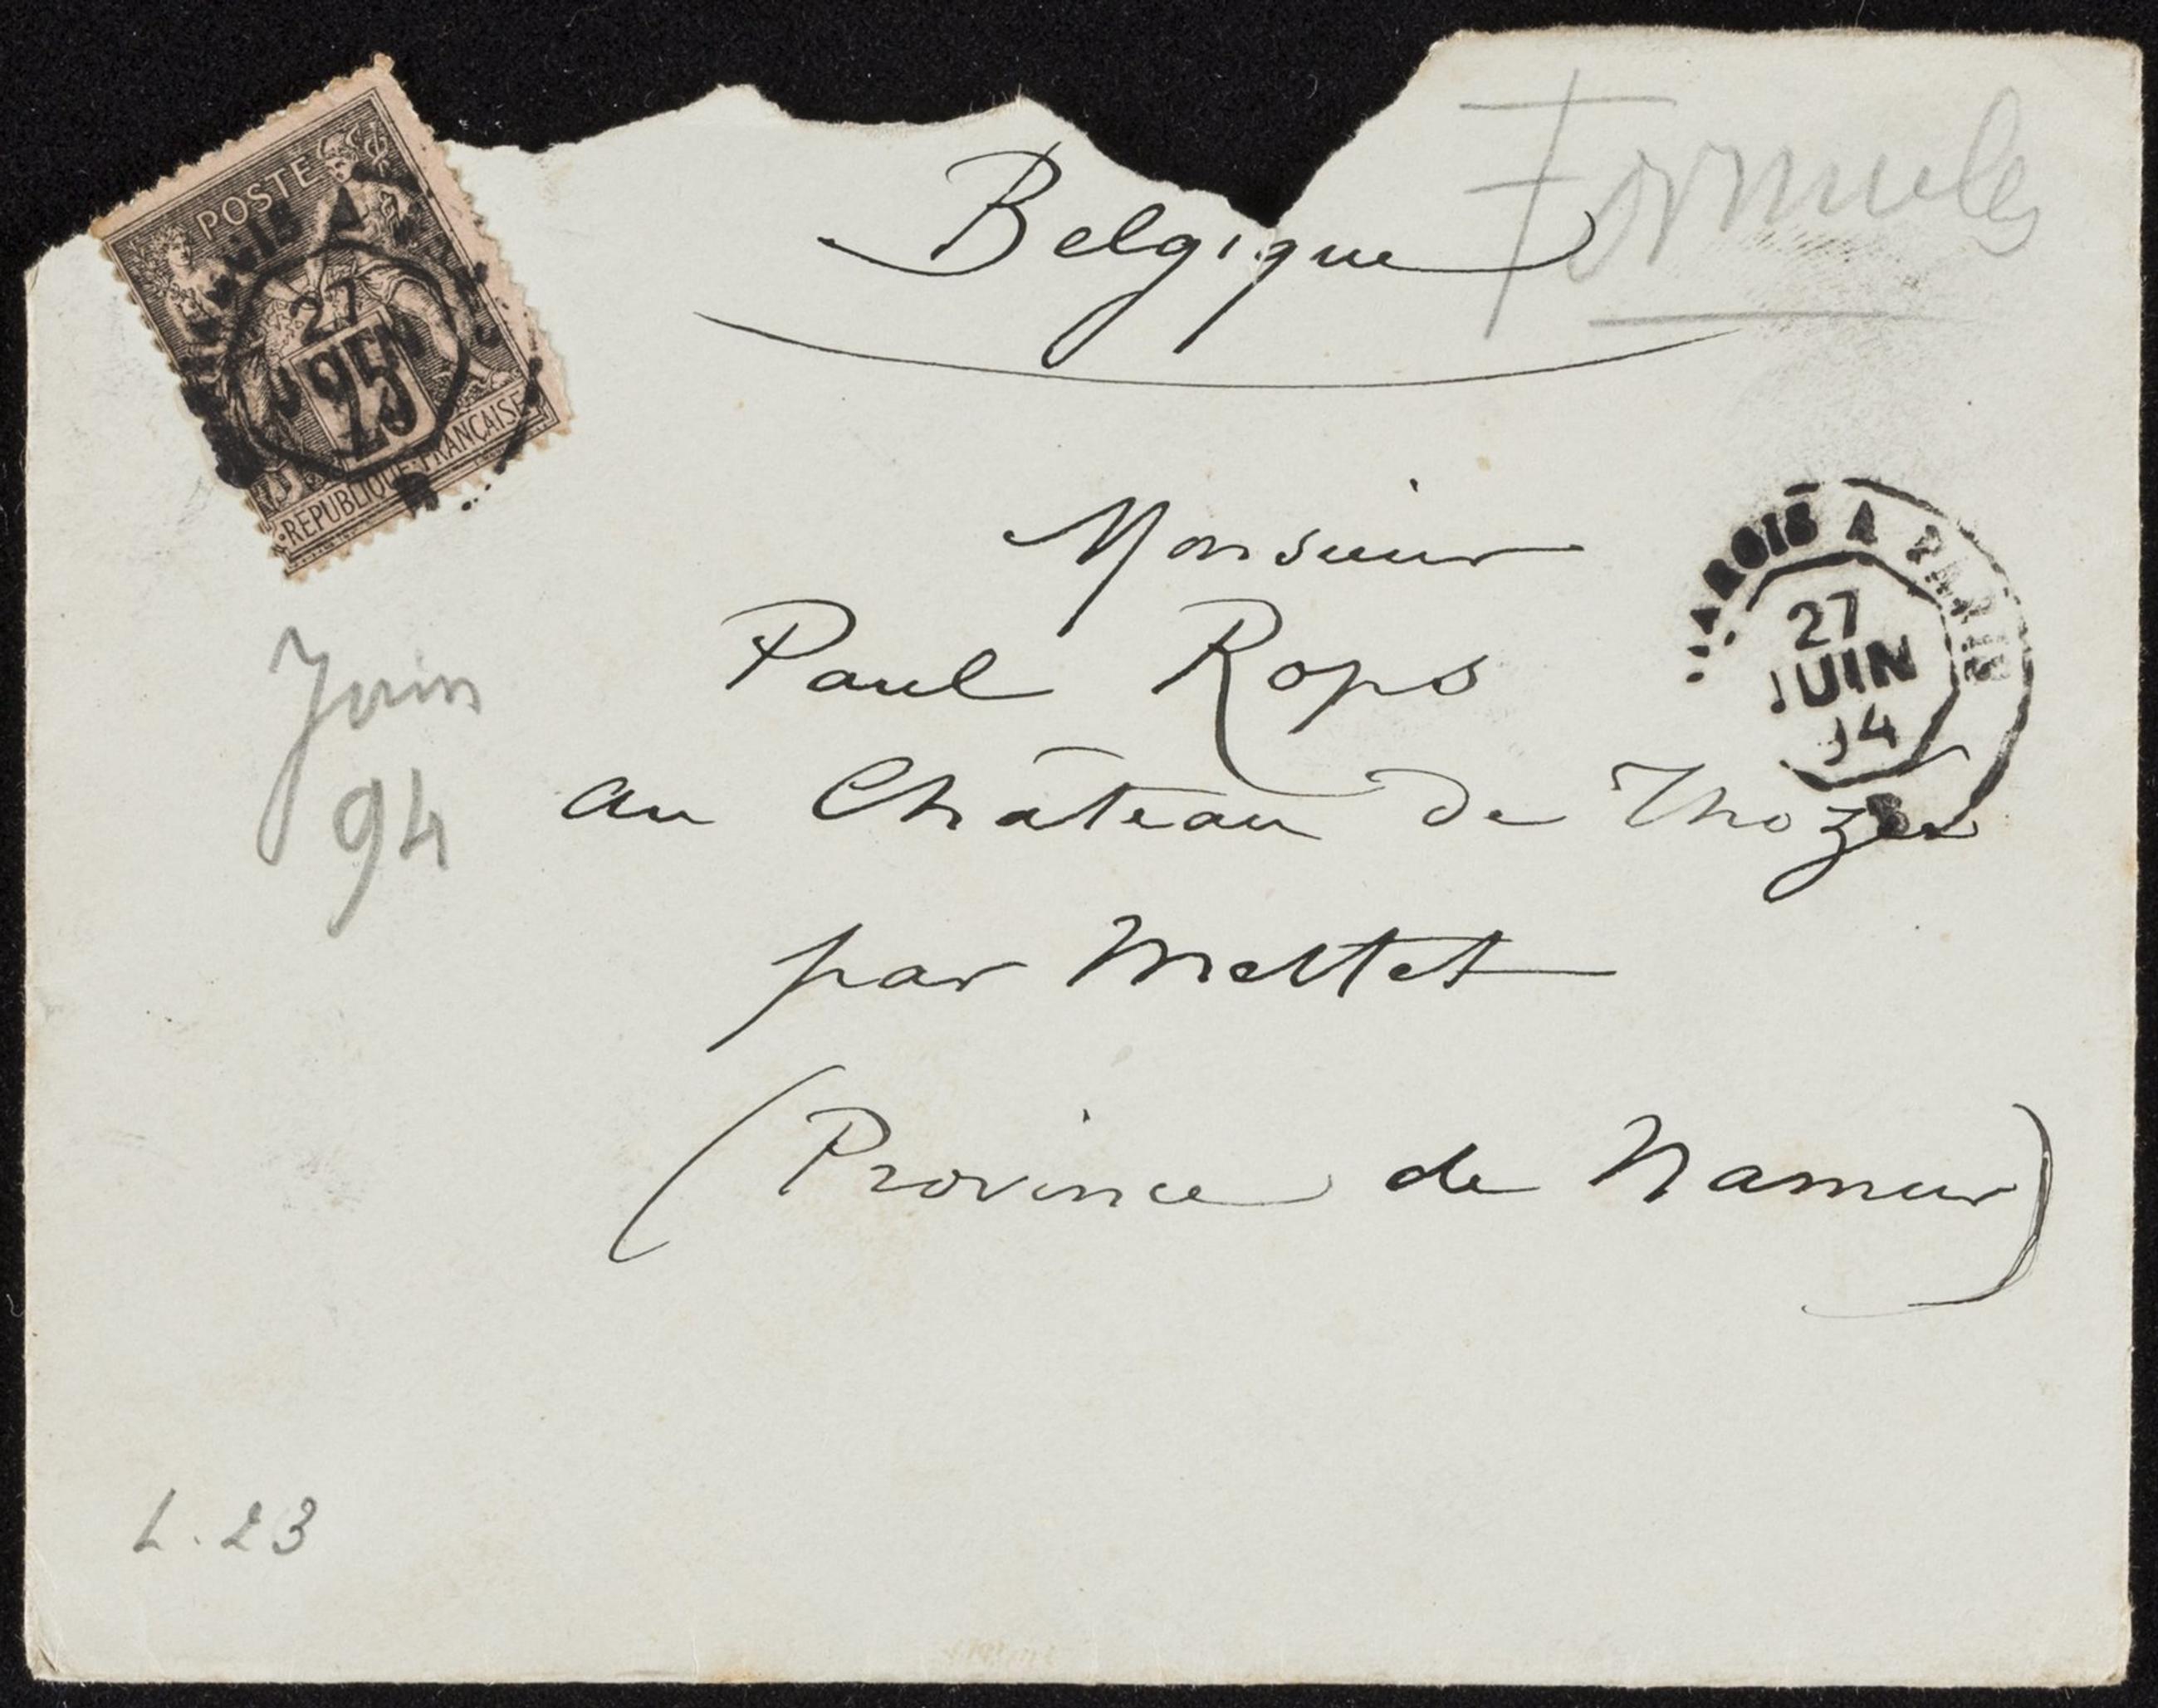 Formules
Belgique
POSTE
27
25
REPUBLIQUE FRANÇAISE
Monsieur
Paul Rops
au Château de Thozée
par Mettet
(Province de Namur)
A PARIS
27
JUIN
94
Juin
94
L. 23